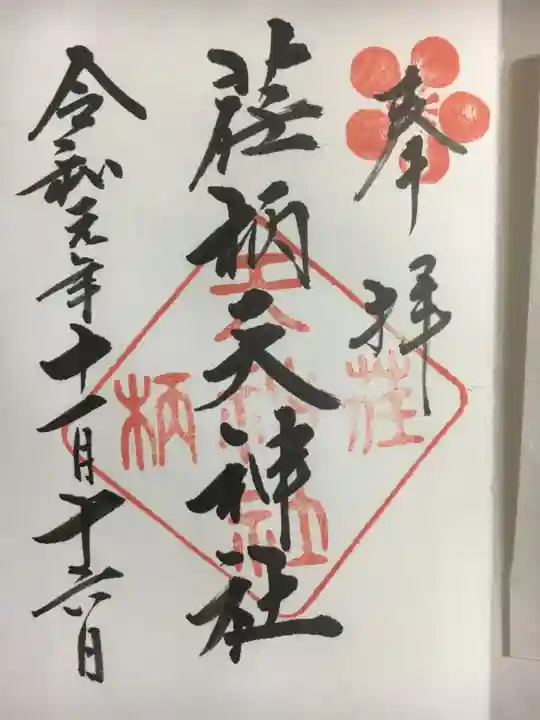 奉拝
荏柄天神社
令和元年十一月十六日
荏
柄
天
神
社